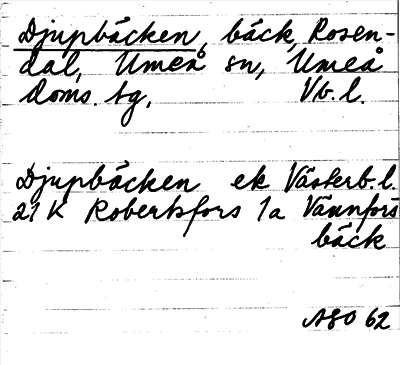 Djupbäcken, bäck, Rosen-
dal, Umeå sn, Umeå
doms. tg, Vb. l.
Djupbäcken ek Västerb. l.
21 K Robertsfors 1a Vännfors
bäck
ASO 62